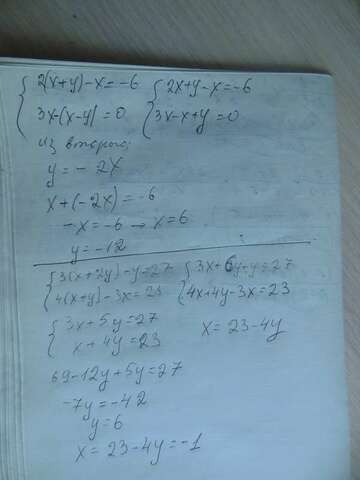 2(x+y)-x=-6 2x+y-x=-6
3x-(x-y)=0 3x-x+y=0
из второго:
y=-2x
x+(-2x)=-6
-x=-6→x=6
y=-12
3(x+2y)-y=27 3x+6y-y=27
4(x+y)-3x=23 4x+4y-3x=23
3x+5y=27
x+4y=23 x=23-4y
69-12y+5y=27
-7y=-42
y=6
x=23-4y=-1